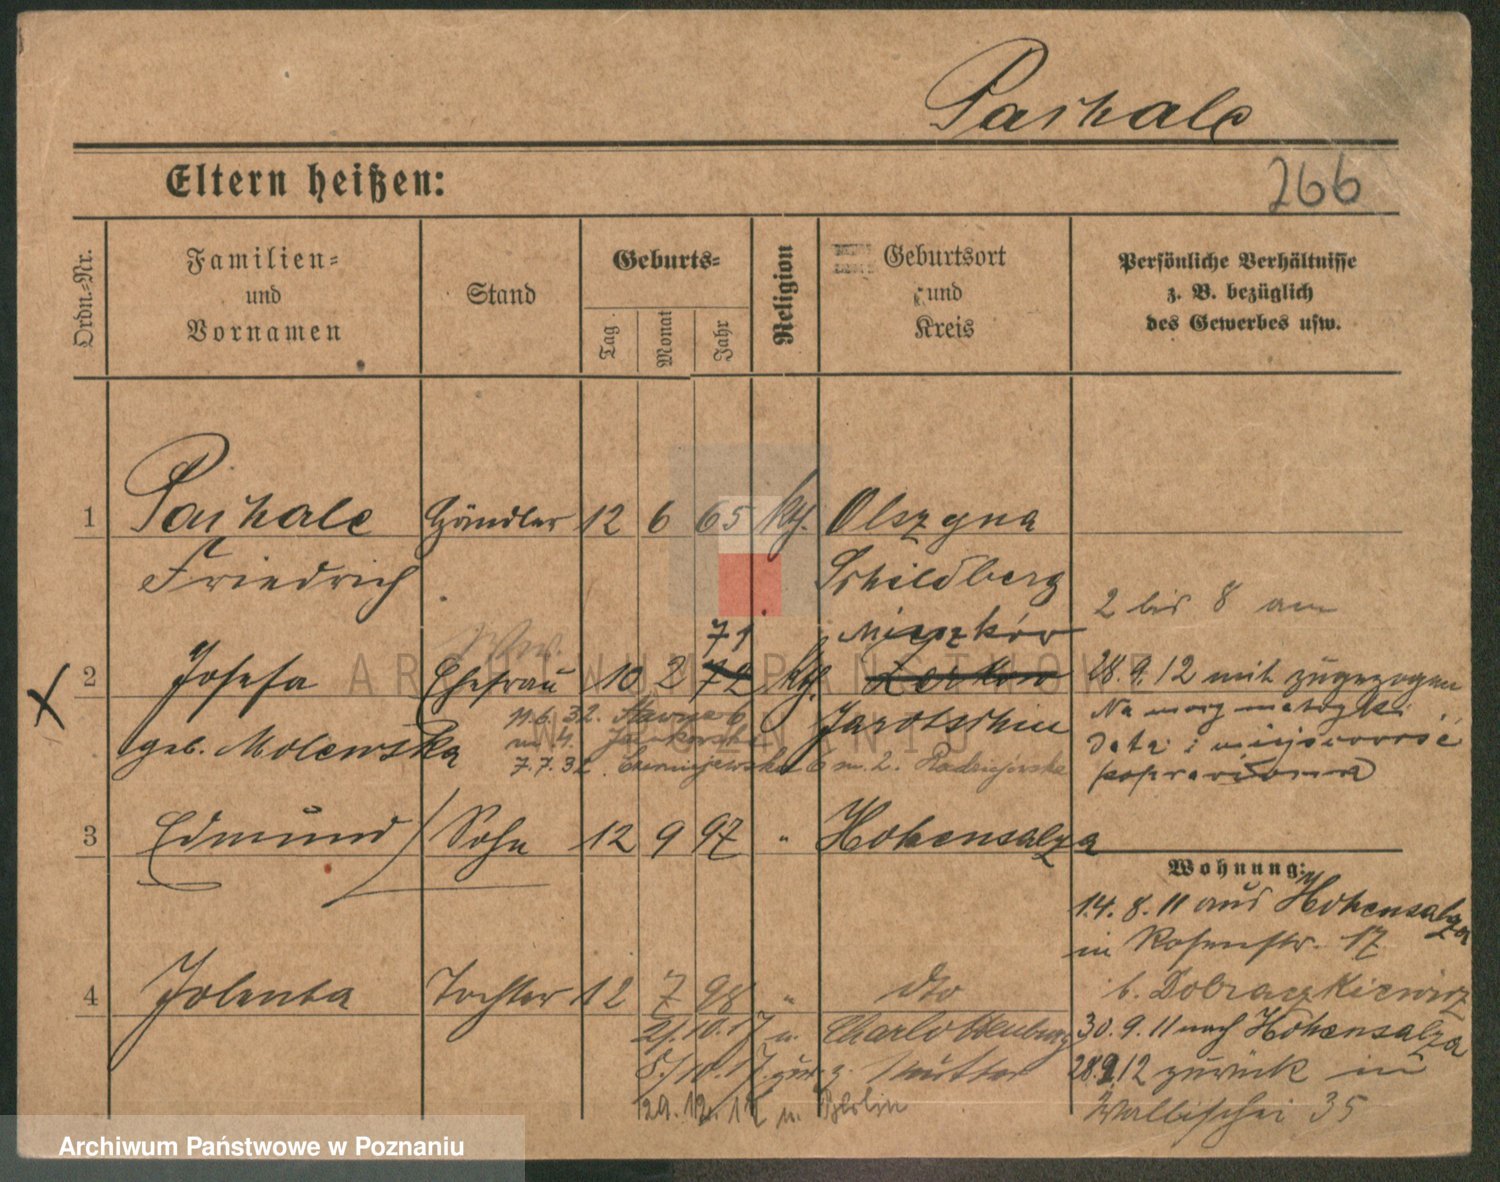 Paschale
Eltern heißen:
266
Ordn.-Nr.
Familien-
und
Vornamen
Stand
Geburts-
Tag
Monat
Jahr
Religion
Geburtsort
und
Kreis
Persönliche Verhältnisse
z. B. bezüglich
des Gewerbes usw.
1 Paschale Händler 12 6 65 kth. Olszyna
Friedrich Schildberg
2 bis 8 am
71 Mieszków
2 Josefa Ehefrau 10 2 72 kth. Zerkow 28.9.12 mit zugezogen
geb. Molewska Jarotschin
11.6.32.
7.7.32. Czerniejewska 6 m. 2. Radziejewska
Na mocy metryki
Data i miejscowość
poprawiona
3 Edmund Sohn 12 9 97 " Hohensalza
Wohnung:
14. 8. 11 aus Hohensalza
in Rosenstr. 17
b. Dobraczkiewicz
4 Jolenta Tochter 12 7 98 " dto
30. 9. 11 nach Hohensalza
28.9.12 zurück in
Wallischei 35
21.10.17 n. Charlottenburg
8./10.17. zur. z. Mutter
29.12.17 n. Berlin
ARCHIWUM PAŃSTWOWE
W POZNANIU
Archiwum Państwowe w Poznaniu